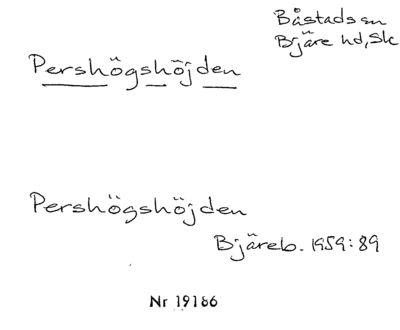 Båstads sn
Bjäre hd, Sk
Pershögshöjden
Pershögshöjden
Bjäreb. 1959:89
Nr 19186